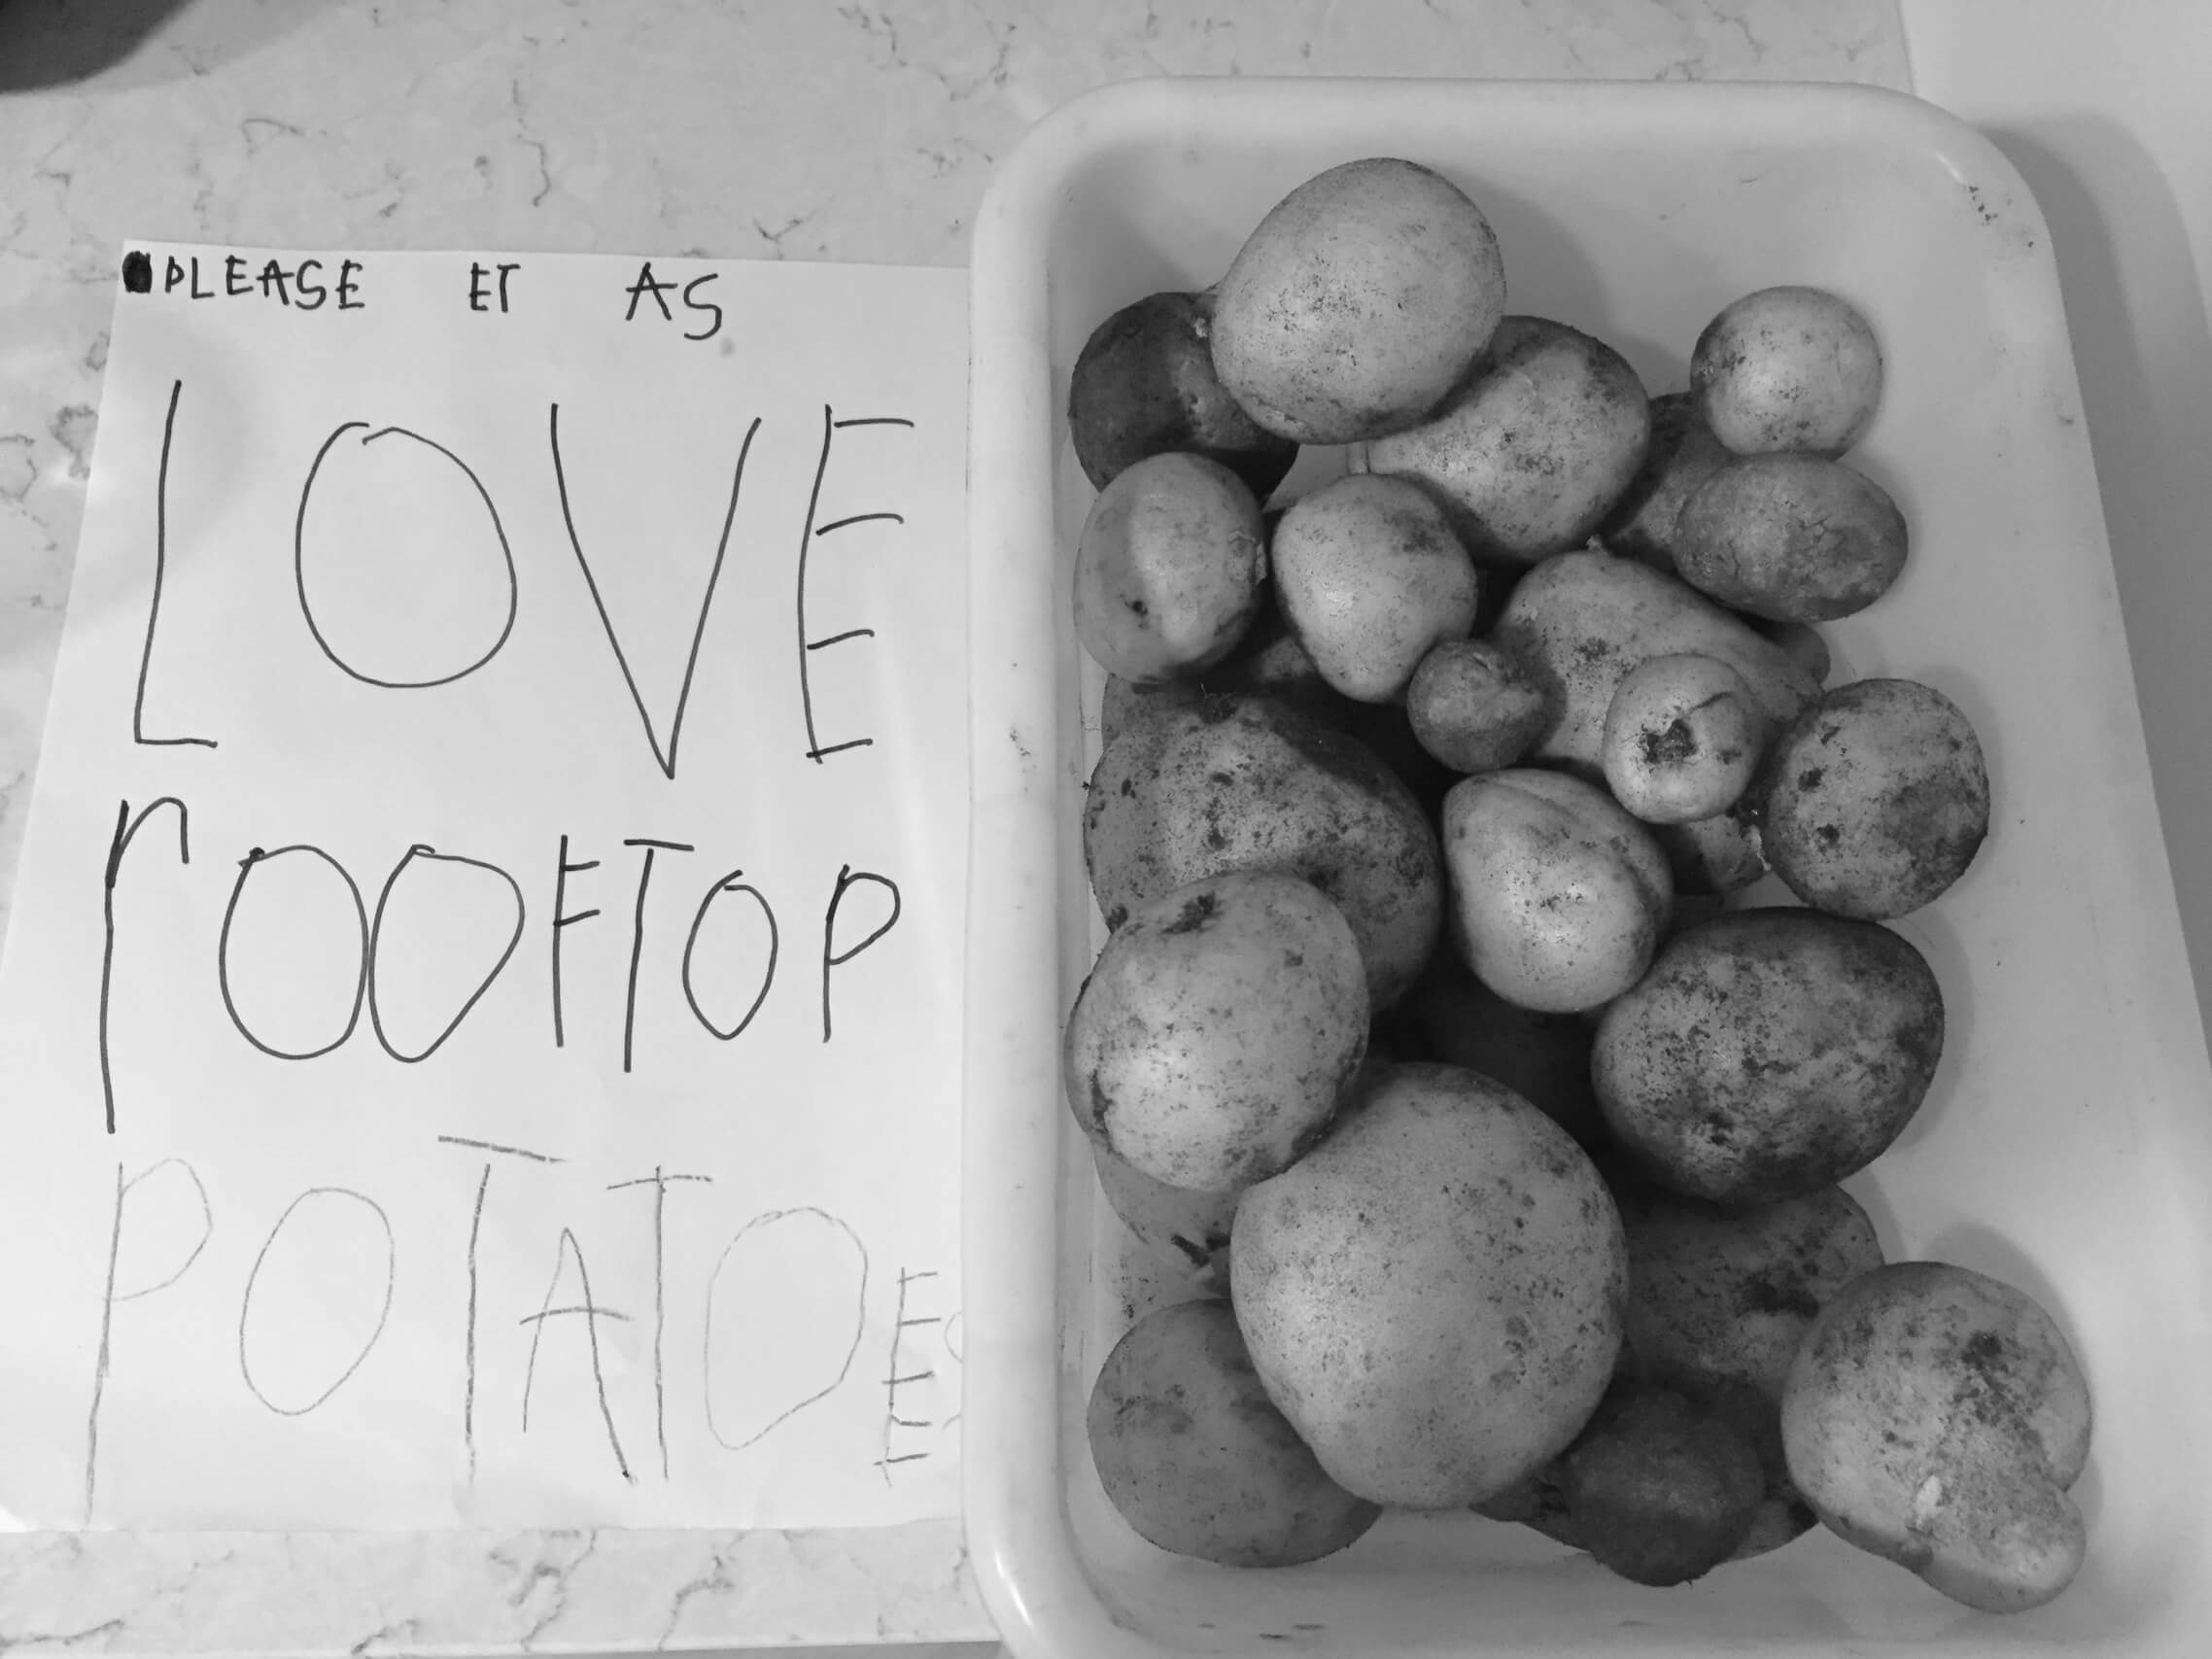 PLEASE ET AS
LOVE
rOOFTOP
POTATOES